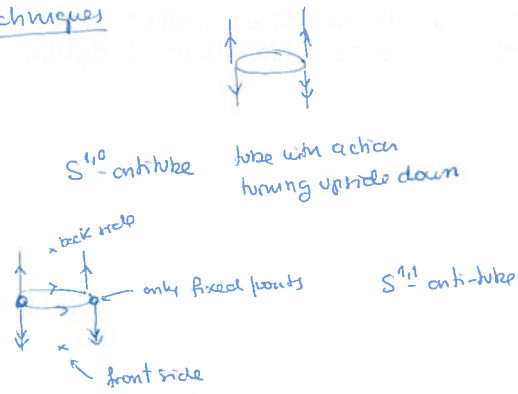 chniques
S^{1,0}-antitube tube with action
turning upside down
× back side
only fixed points S^{1,1}-anti-tube
×
front side